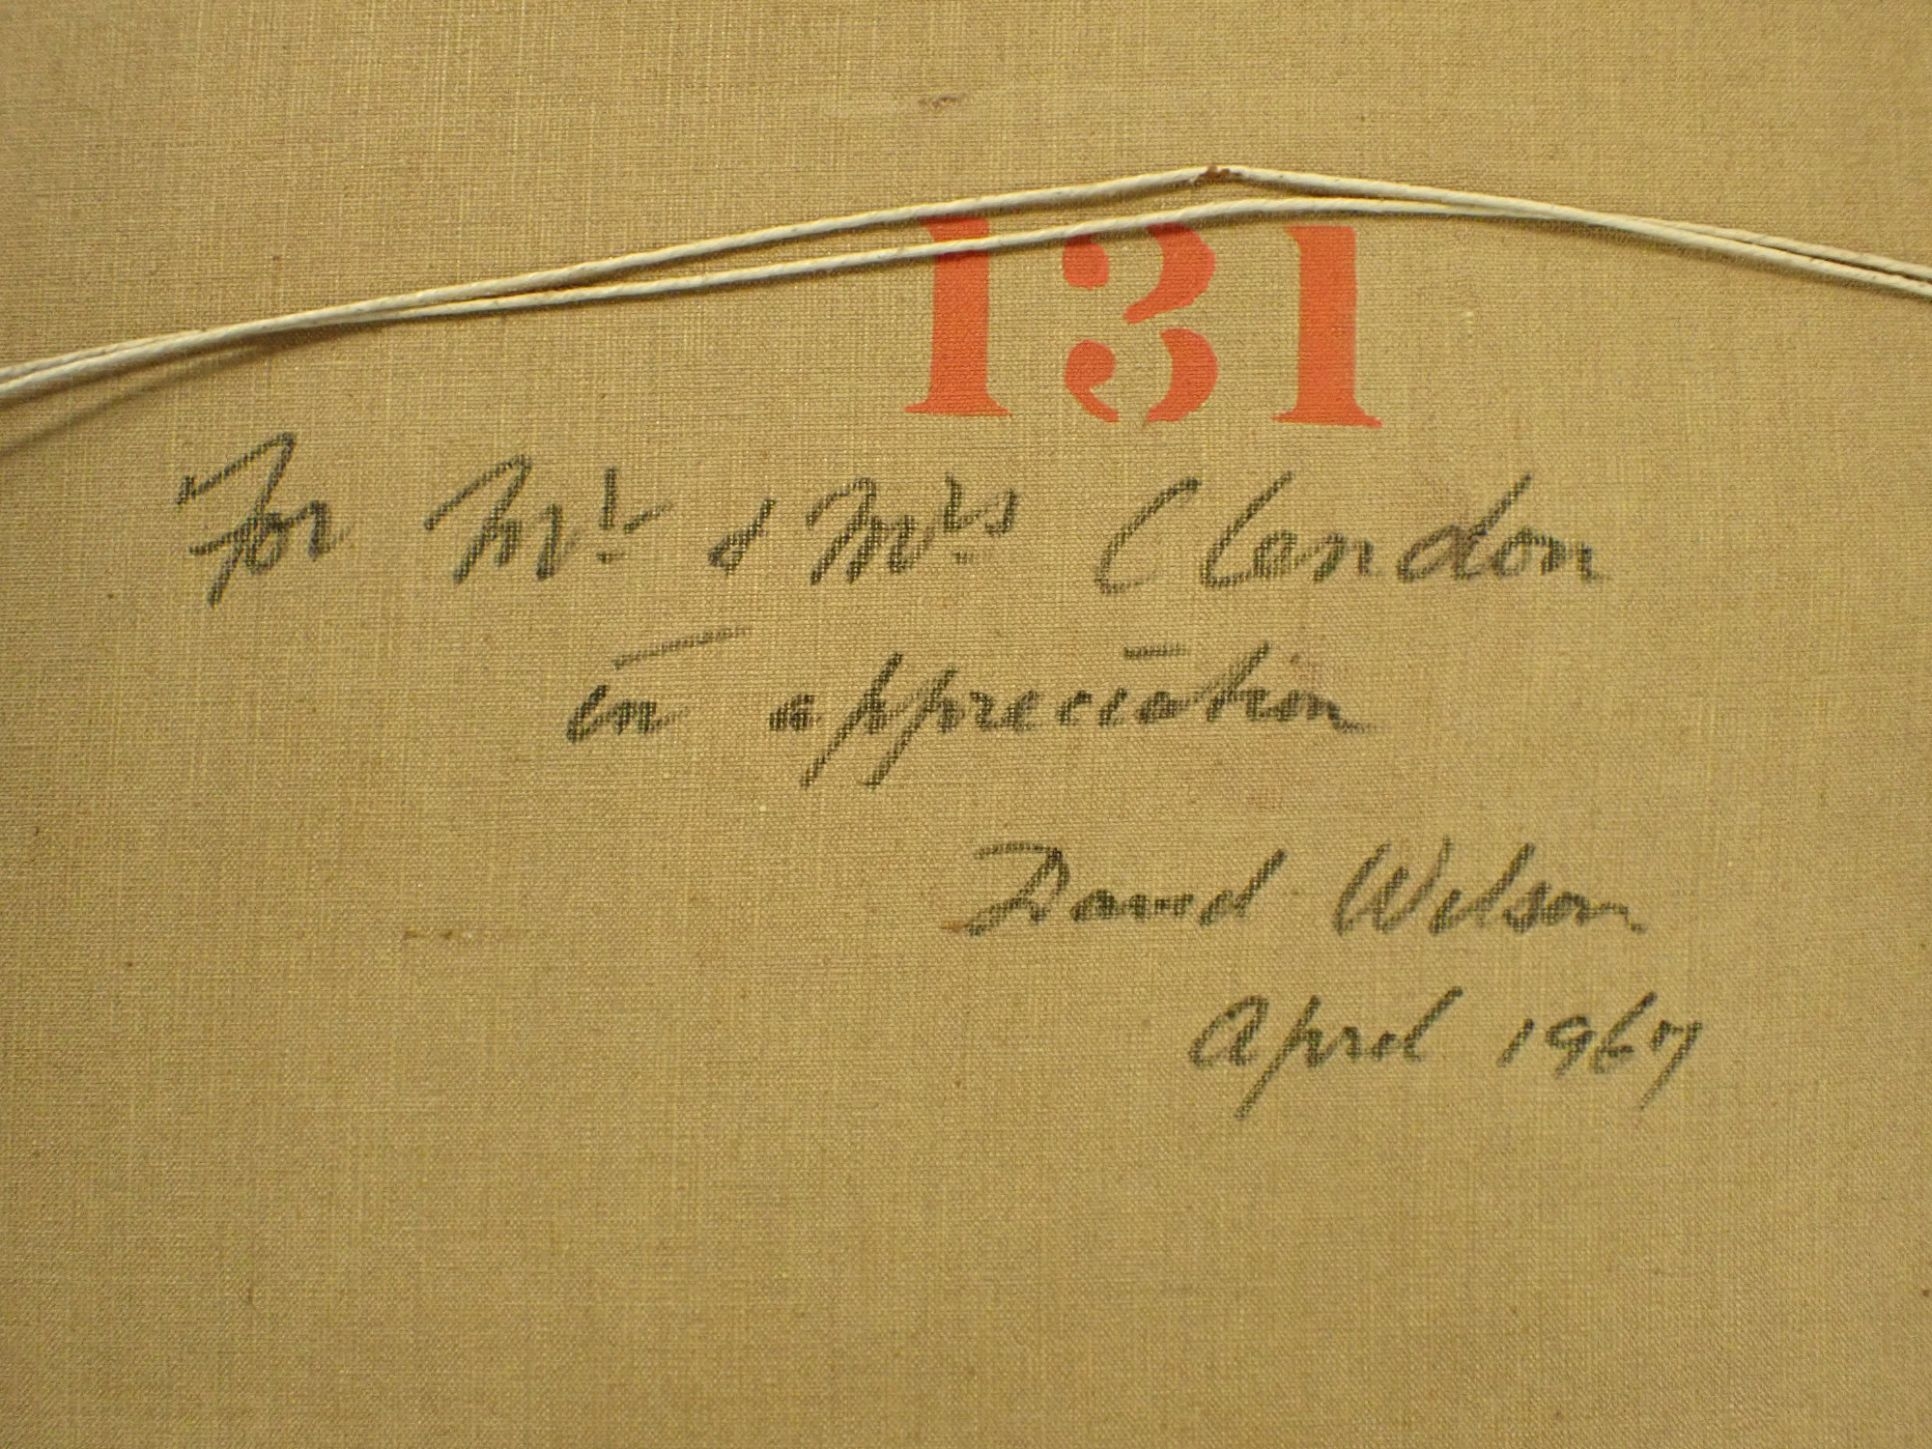 131
For Mr. & Mrs Clendon
in appreciation
David Wilson
April 1967